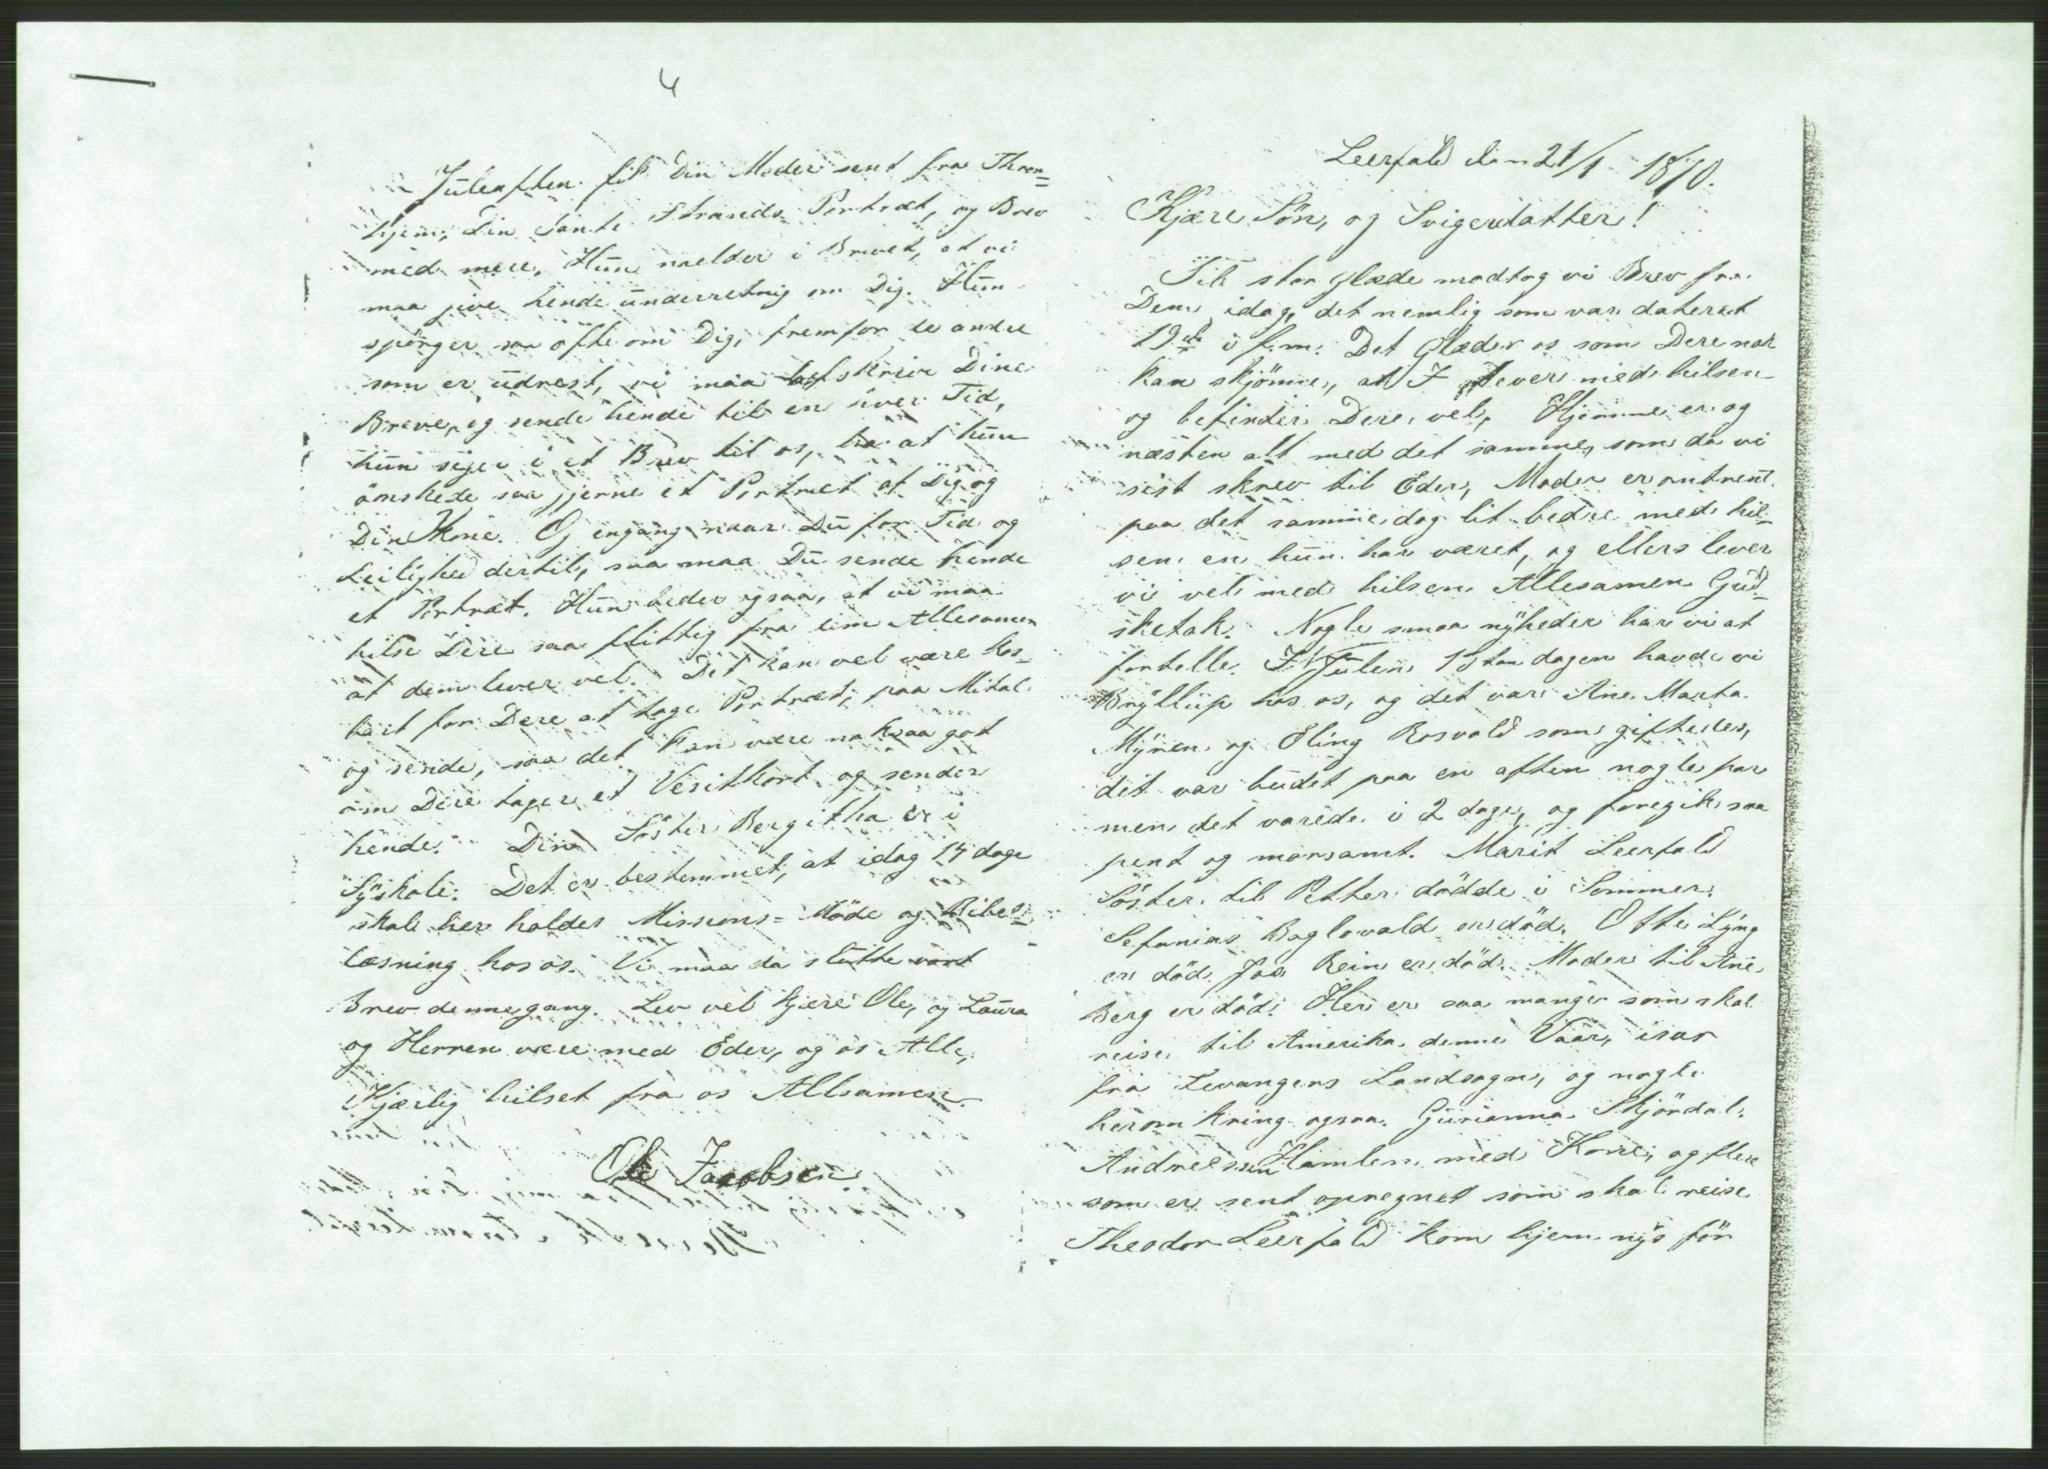 Leerfald den 21/1 1870.
Kjære Sön, og Svigerdatter!
Til stor Glæde modtog vi Brev fra
Dem idag, det nemlig som var dateret
19de i f.m. Det Glæder os som Dere nok
kan skjönne, at I lever med hilsen
og befinder Dere vel, Hjemme er og
næsten alt med det samme, som da vi
sist skrev til Eder, Moder er omtrent
paa det samme, dog lit bedre med hil-
sen en hun har været, og ellers lever
vi vel med hilsen Allesamen Gud
sketak. Nogle smaa nyheder har vi at
fortelle. I Julen 13tan dagen havde vi
Bryllup hos os, og det var Ane Marta
Myren og Eling Rosvald som giftedes,
det var budet paa en aften nogle par
men det varede i 2 dage, og foregik saa
pent og morsamt. Marit Leerfald
Söster til Petter dödde i Sommer.
Sefanias Baglovald er död. Otte Lyng
er död. Jaa Rein er död. Moder til Ane
Berg er död. Her er saa mange som skal
reise til Amerika denne Vaar, isar
fra Levangers Landsogn, og nogle
herom kring ogsaa. Gurianna Skjördal
Andreesen Hamlen med Kone, og flere
som er sent opregnet som skal reise
Theodor Leerfald kom hjem nys för
4
Juleaften til Din Moder sent fra Thron=
hjem, Din Tante Strands Portræt, og Brev
med mere, Hun melder i Brevet, at vi
maa jive hende underretnig om Dig. Hun
spörger saa ofte om Dig, fremfor de andre
som er udrest, vi maa afskrive Dine
Breve, og sende hende til en hver Tid,
hun sejer i et Brev til os, ha at hun
önskede saa jjerne et Portræt af Dig og
Din Kone. Og engang naar Du for Tid og
Leilighed dertil, saa maa Du sende hende
et Portræt. Hun beder ogsaa, at vi maa
hilse Dere saa flittig fra dem Allesamen
at dem lever vel. Det kan vel være kos-
bart for Dere at tage Portræt, paa Mital
og sende, saa det kan være nok saa got
om Dere tager et Vesitkort og sender
hende. Din Söster Bergitha er i
Syskole. Det er bestemmet, at idag 14 dage
skal her holdes Missions=Möde og Bibel=
læsning hos os. Vi maa da slutte vort
Brev denne gang. Lev vel kjere Ole, og Laura
og Herren være med Eder, og os Alle,
Kjærlig hilset fra os Allsamen.
Ole Jacobsen